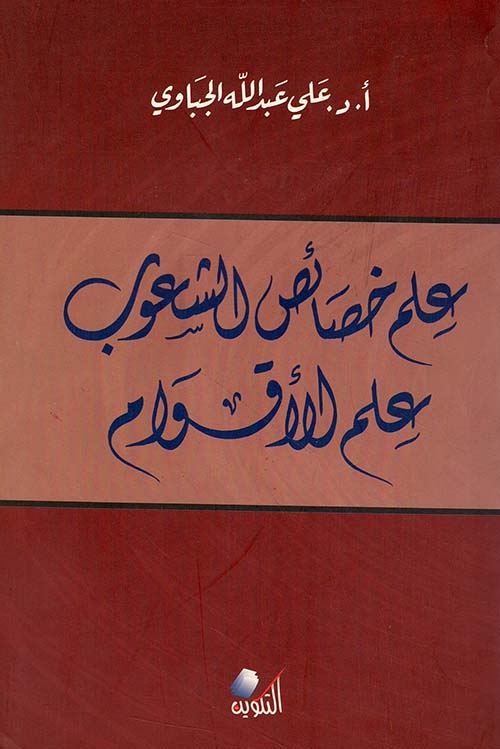 أ. د. عَلي عَبد اللّه الجبَاوي
عِلم خصَائص الشّعوب
عِلم الأقوَام
التكوين